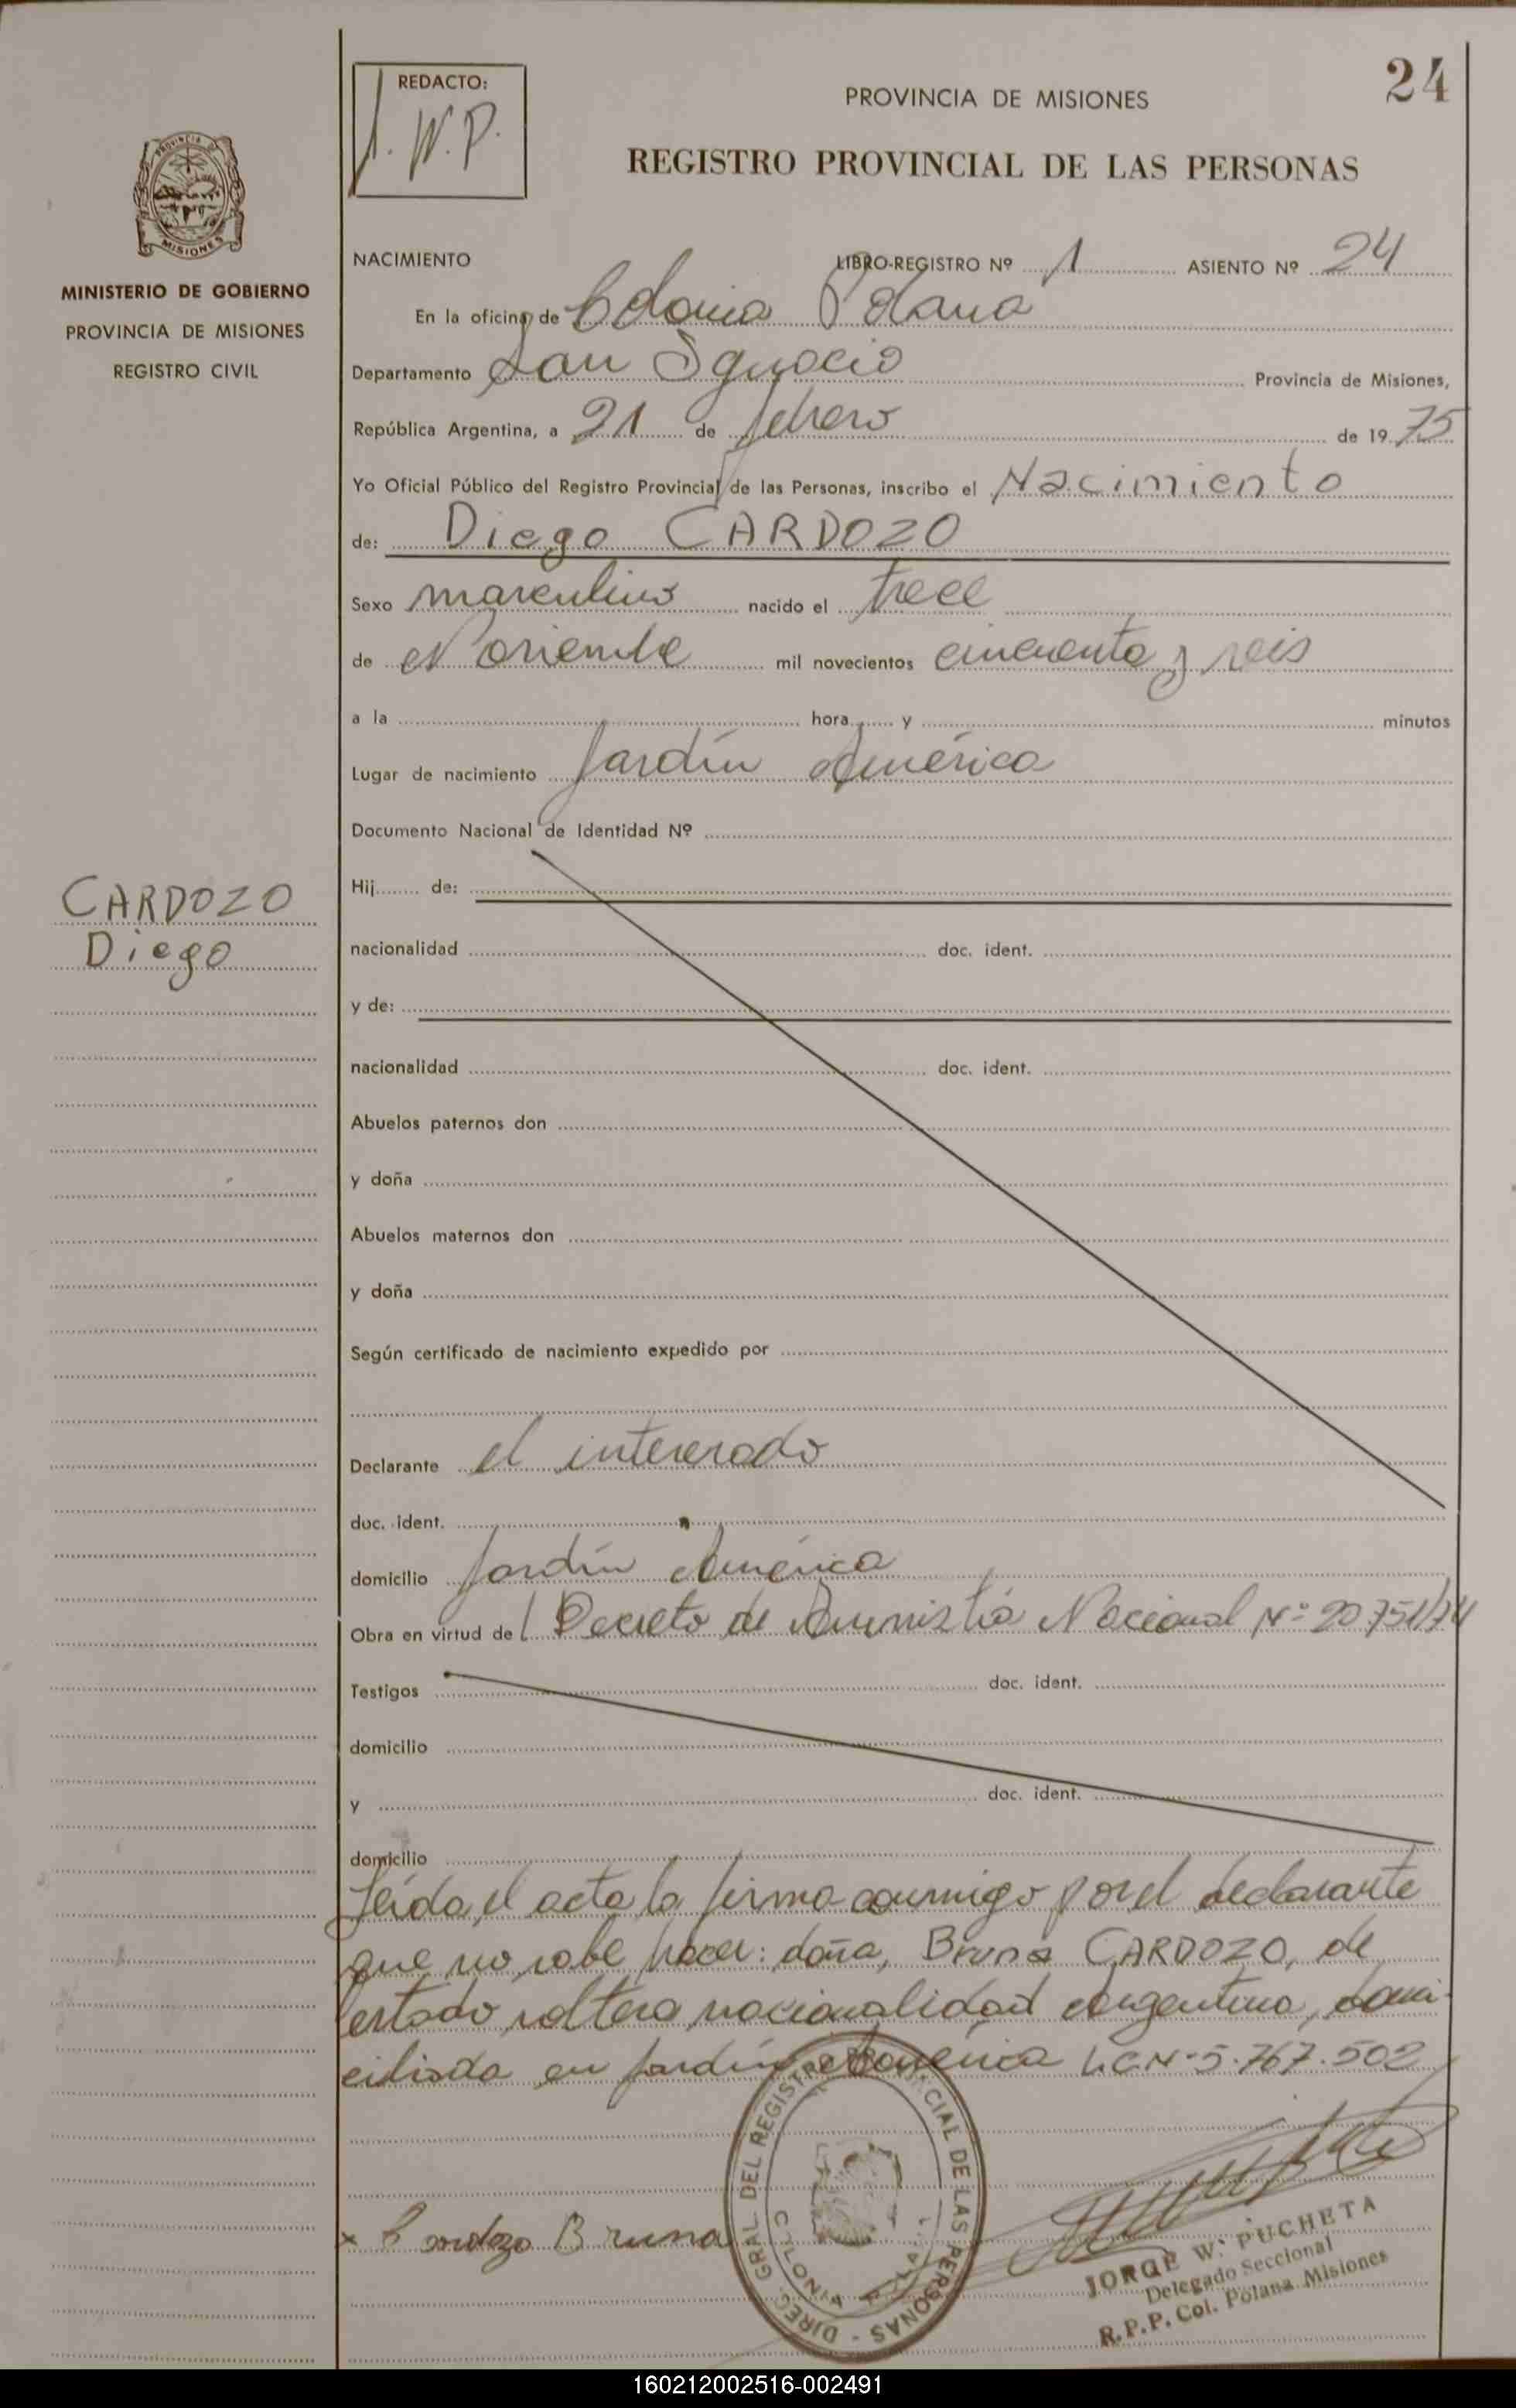 24
REDACTO:
J. W. P.
PROVINCIA DE MISIONES
REGISTRO PROVINCIAL DE LAS PERSONAS
MISIONES
MINISTERIO DE GOBIERNO
PROVINCIA DE MISIONES
REGISTRO CIVIL
NACIMIENTO LIBRO-REGISTRO Nº 1 ASIENTO Nº 24
En la oficina de Colonia Polana
Departamento San Ignacio Provincia de Misiones,
República Argentina, a 21 de febrero de 1975
Yo Oficial Público del Registro Provincial de las Personas, inscribo el Nacimiento
de: Diego CARDOZO
Sexo masculino nacido el trece
de Noviembre mil novecientos cincuenta y seis
a la hora y minutos
Lugar de nacimiento Jardín América
Documento Nacional de Identidad Nº
CARDOZO
Diego
Hij de:
nacionalidad doc. ident.
y de:
nacionalidad doc. ident.
Abuelos paternos don
y doña
Abuelos maternos don
y doña
Según certificado de nacimiento expedido por
Declarante el interesado
doc. ident.
domicilio Jardín América
Obra en virtud del Decreto de Amnistía Nacional Nº 20.751/74
Testigos doc. ident.
domicilio
y doc. ident.
domicilio
Leída el acta la firma conmigo por el declarante
que no sabe hacer: doña, Bruna CARDOZO, de
estado soltera nacionalidad Argentina, domi-
ciliada en Jardín América L.C. Nº 5.767.502
x Cardozo Bruna
DIREC. GRAL. DEL REGISTRO PROVINCIAL DE LAS PERSONAS
JORGE W. PUCHETA
Delegado Seccional
R.P.P. Col. Polana Misiones
160212002516-002491